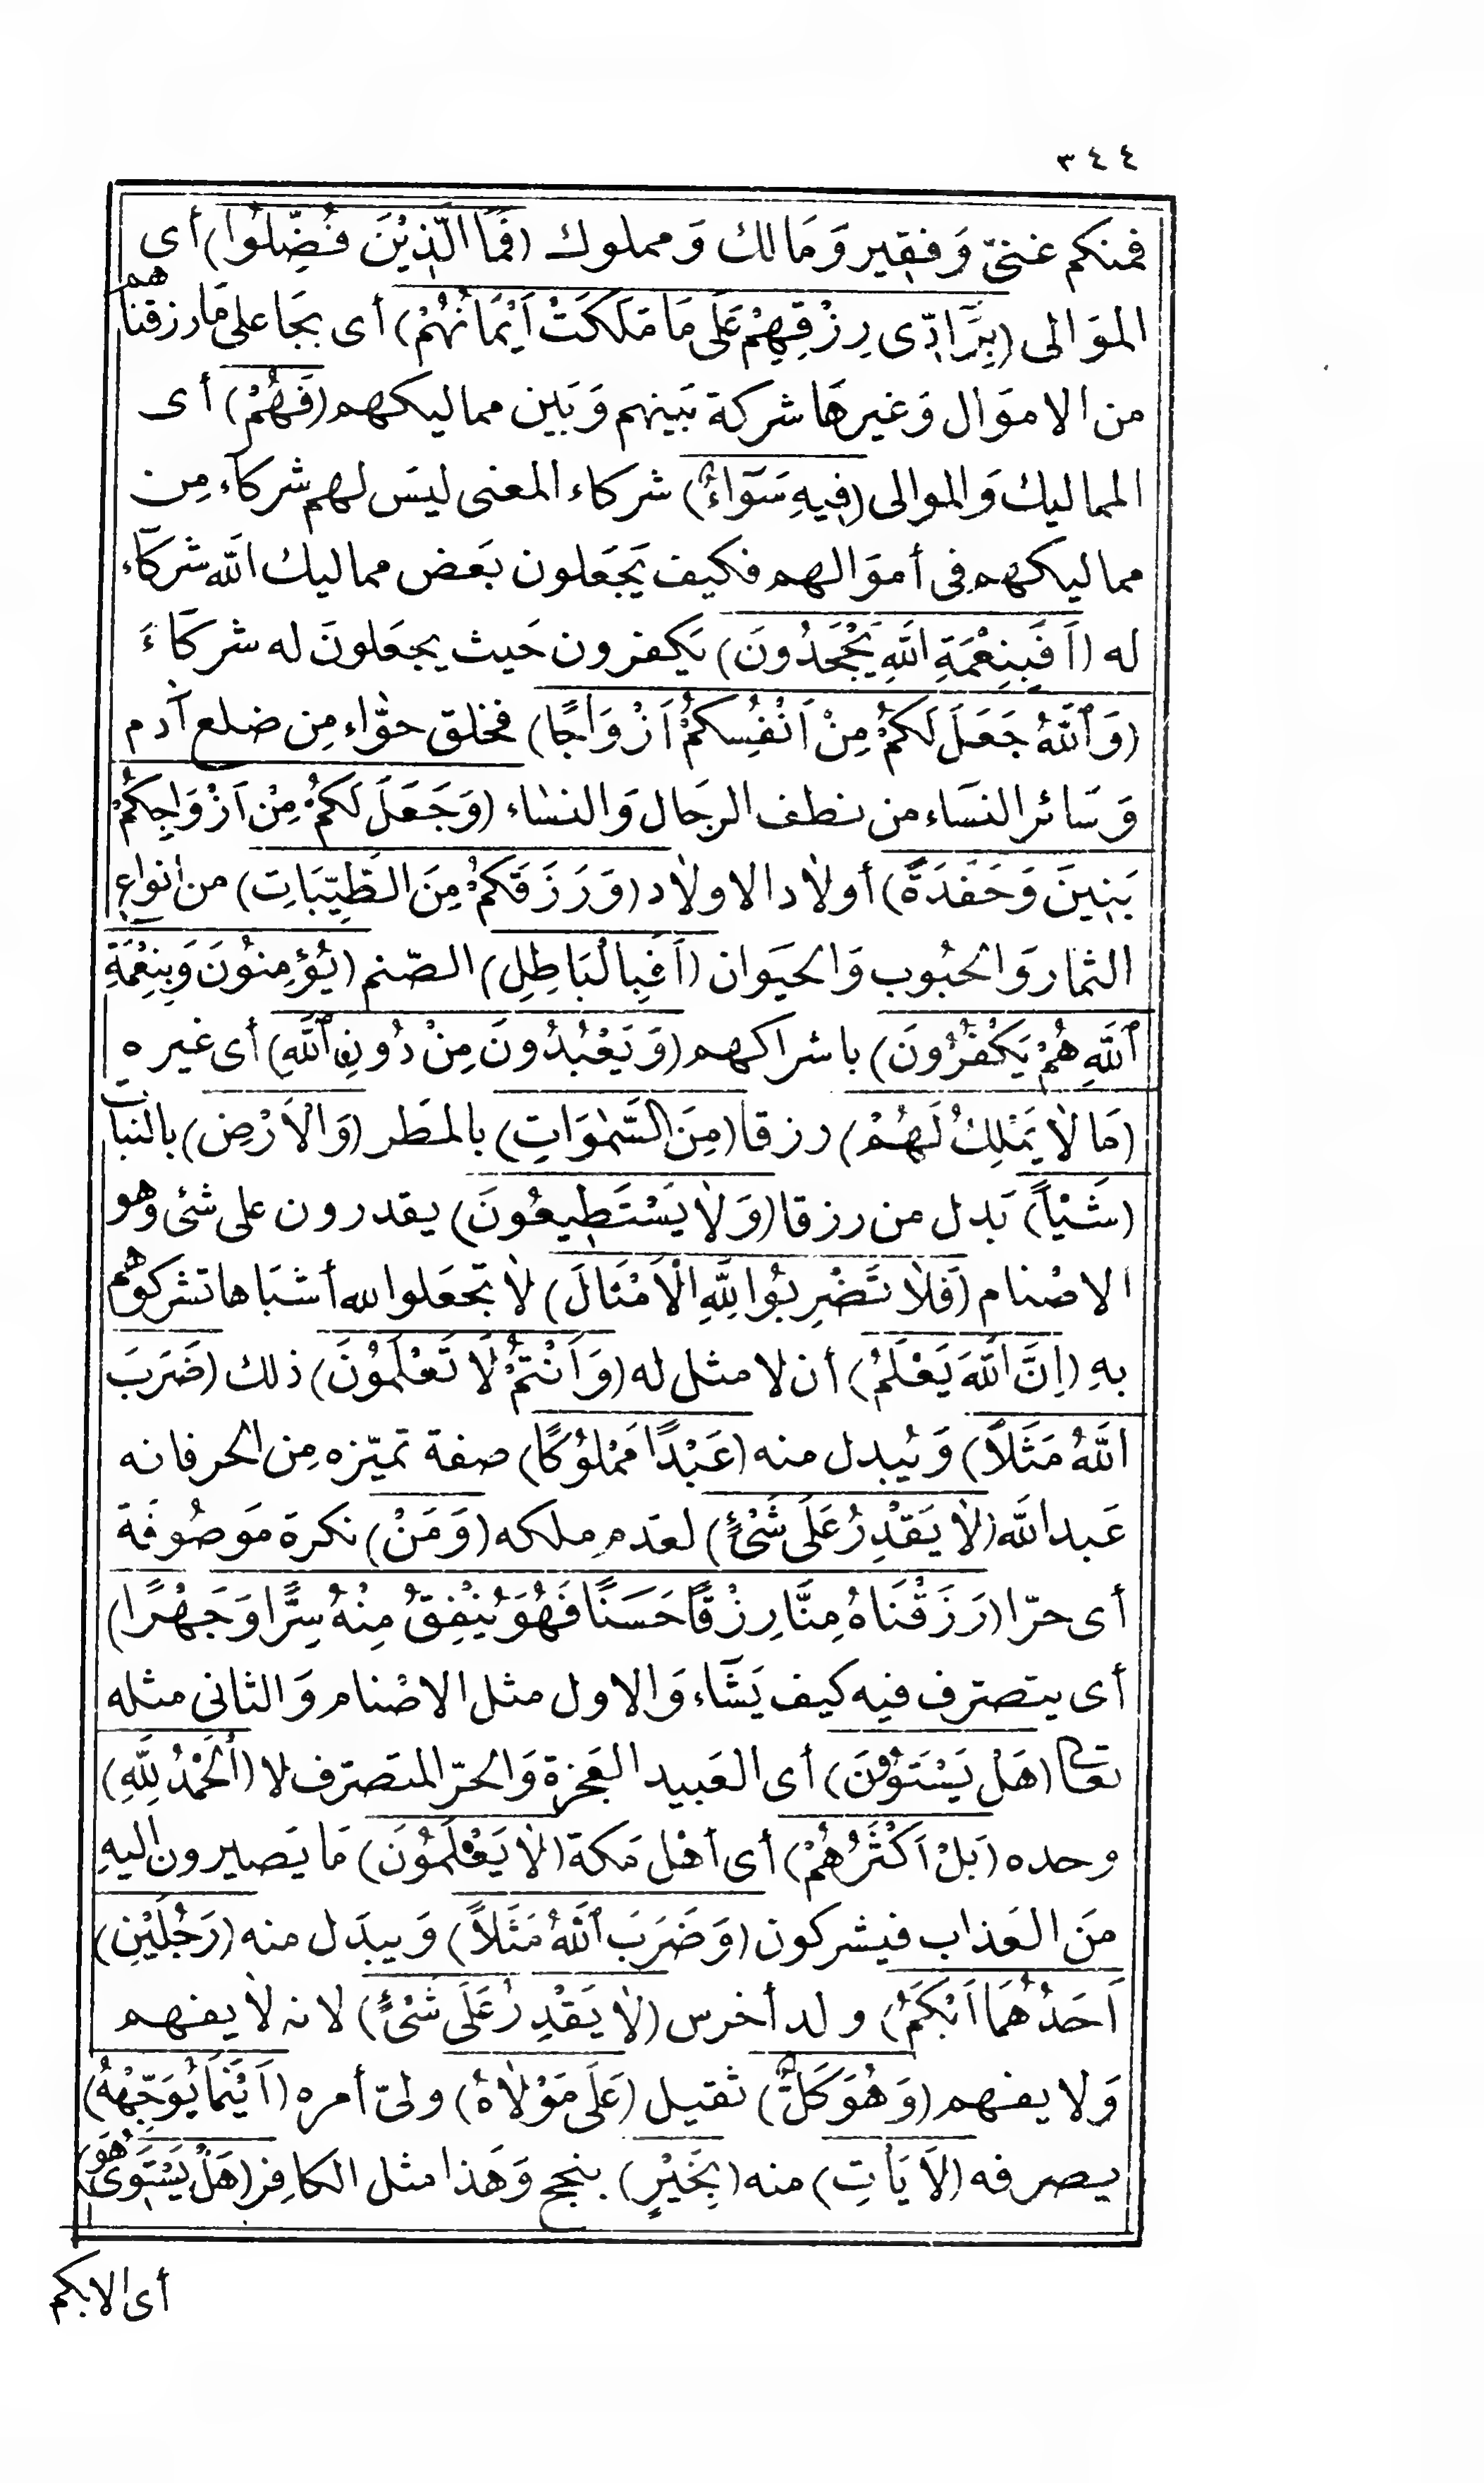 ٣٤٤
فمنكم غنىّ وَفقير وَمَالك وَمملوك (فَمَا الَّذِيْنَ فُضِّلُوا) أى
الموَالى (بِرَآدِّى رِزْقِهِمْ عَلَى مَا مَلَكَتْ اَيْمَانُهُمْ) أى بجَاعلى مَا رزقناهم
من الاموَال وَغيرهَا شركة بَينهم وَبَين مماليكهم (فَهُمْ) أى
المماليك وَالموالى (فِيهِ سَوَآءٌ) شركاء المعنى ليسَ لهم شركآء مِن
مماليكهم فى أموَالهم فكيف يَجَعَلون بَعض مماليك الله شركآء
له (اَفَبِنِعْمَةِ اللهِ يَجْحَدُونَ) يَكفرون حَيث يجعَلونَ له شركآءَ
(وَاللهُ جَعَلَ لَكُمْ مِنْ اَنْفُسِكُمْ اَزْوَاجًا) فخلق حوّاء مِن ضلع آدم
وَسَائر النسَاء من نطف الرجَال وَالنسَاء (وَجَعَلَ لَكُمْ مِنْ اَزْوَاجِكُمْ
بَنِينَ وَحَفَدَةً) أولاد الاولاد (وَرَزَقَكُمْ مِنَ الطَّيِّبَاتِ) من أنواع
الثمار وَالحبُوب وَالحيَوان (اَفَبِالْبَاطِلِ) الصّنم (يُؤْمِنُونَ وَبِنِعْمَةِ
اللهِ هُمْ يَكْفُرُونَ) باشراكهم (وَيَعْبُدُونَ مِنْ دُونِ اللهِ) أى غيره
(مَا لاَ يَمْلِكُ لَهُمْ) رزقا (مِنَ السَّمٰوَاتِ) بالمَطر (وَالاَرْضِ) بالنبات
(شَيْأً) بَدل من رزقا (وَلاَ يَسْتَطِيعُونَ) يقدرون على شئ وهو
الاصْنام (فَلاَ تَضْرِبُوا لِلّٰهِ الْاَمْثَالَ) لاَ تجعَلوا لله أشبَاها تشركوهم
بهِ (اِنَّ اللهَ يَعْلَمُ) أن لا مثل له (وَاَنْتُمْ لَا تَعْلَمُوْنَ) ذلك (ضَرَبَ
اللهُ مَثَلاً) وَيُبدل منه (عَبْدًا مَمْلُوْكًا) صفة تميّزه مِن الحر فانه
عَبد الله (لاَ يَقْدِرُ عَلَى شَىْءٍ) لعَدم ملكه (وَمَنْ) نكرة مَوصُوفَة
أى حرّا (رَزَقْنَاهُ مِنَّا رِزْقًا حَسَنًا فَهُوَ يُنْفِقُ مِنْهُ سِرًّا وَجَهْرًا)
أى يتصرّف فيه كيف يَشَآء وَالاول مثل الاصْنام وَالثانى مثله
تعَالى (هَلْ يَسْتَوُوْنَ) أى العَبيد العَجزة وَالحرّ المتَصرّف لا (اَلْحَمْدُ لِلّٰهِ)
وحده (بَلْ اَكْثَرُهُمْ) أى أهْل مَكة (لاَ يَعْلَمُوْنَ) مَا يَصيرون اليهِ
مَن العَذاب فيشركون (وَضَرَبَ اللهُ مَثَلاً) وَيبدَل منه (رَجُلَيْنِ)
اَحَدُهُمَا اَبْكَمُ) ولد أخرس (لاَ يَقْدِرُ عَلَى شَىْءٍ) لانه لاَ يفهم
وَلا يفهم (وَهُوَ كَلٌّ) ثقيل (عَلَى مَوْلاَهُ) ولىّ أمره (اَيْنَمَا يُوَجِّهْهُ)
يصرفه (لاَ يَأتِ) منه (بِخَيْرٍ) بنجح وَهَذا مثل الكافِر (هَلْ يَسْتَوِى هُوَ)
أى الابكم